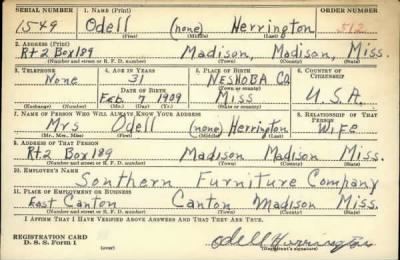 SERIAL NUMBER 1. NAME (Print) ORDER NUMBER
1549 Odell (none) Herrington 512
(First) (Middle) (Last)
2. ADDRESS (Print)
Rt 2 Box 189 Madison, Madison, Miss.
(Number and street or R. F. D. number) (Town) (County) (State)
3. TELEPHONE 4. AGE IN YEARS 5. PLACE OF BIRTH 6. COUNTRY OF CITIZENSHIP
None 31 NESHOBA CO.
DATE OF BIRTH (Town or county)
Feb. 7 1909 Miss U.S.A.
(Exchange) (Number) (Mo.) (Day) (Yr.) (State or country)
7. NAME OF PERSON WHO WILL ALWAYS KNOW YOUR ADDRESS 8. RELATIONSHIP OF THAT PERSON
Mrs Odell (none) Herrington Wife
(Mr., Mrs., Miss) (First) (Middle) (Last)
9. ADDRESS OF THAT PERSON
Rt.2 Box 189 Madison Madison Miss.
(Number and street or R. F. D. number) (Town) (County) (State)
10. EMPLOYER'S NAME
Sonthern Furniture Company
11. PLACE OF EMPLOYMENT OR BUSINESS
East Canton Canton Madison Miss.
(Number and street or R. F. D. number) (Town) (County) (State)
I AFFIRM THAT I HAVE VERIFIED ABOVE ANSWERS AND THAT THEY ARE TRUE.
REGISTRATION CARD
D. S. S. Form 1 (over) Odell Herrington
(Registrant's signature)